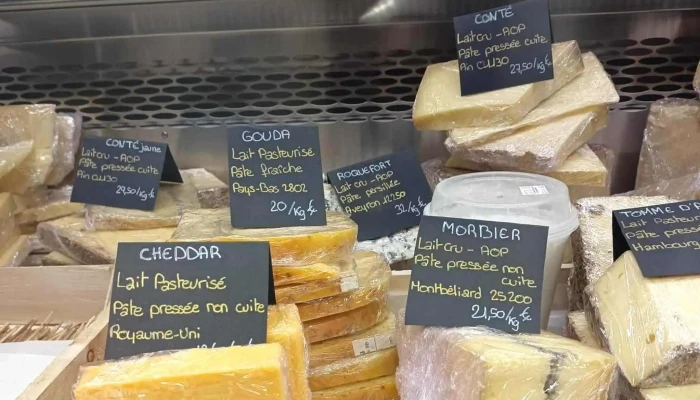 CONTÉ
Lait cru - AOP
Pâte pressée cuite
Ain 01130
27,50/kg€
CONTÉ jaune
Lait cru - AOP
Pâte pressée cuite
Ain 01130
29,50/kg
GOUDA
Lait Pasteurisé
Pâte fraîche
Pays-Bas 2802
20/kg€
ROQUEFORT
Lait cru - AOP
Pâte persillée
Aveyron 12250
32/kg€
CHEDDAR
Lait Pasteurisé
Pâte pressée non cuite
Royaume-Uni
MORBIER
Lait Cru - AOP
Pâte pressée non
cuite
Montbéliard 25200
21,50/kg€
TOMME D'A
Pâte pressée
Hambourg